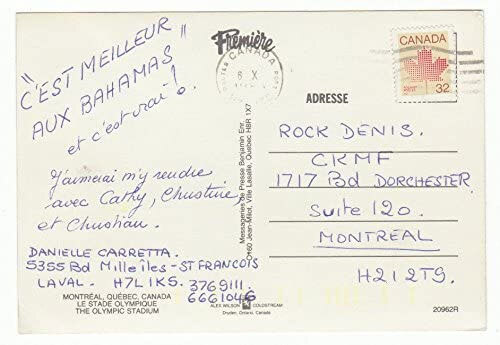 "C'EST MEILLEUR
AUX BAHAMAS"
et c'est vrai!
J'aimerai m'y rendre
avec Cathy, Christine,
et Christian.
DANIELLE CARRETTA.
5355 Bd Mille îles - ST FRANCOIS
LAVAL. H7L1K5. 3769111.
6661046
MONTRÉAL, QUÉBEC, CANADA
LE STADE OLYMPIQUE
THE OLYMPIC STADIUM
Première
Messageries de Presse Benjamin Enr.
9160 Jean-Milot, Ville Lasalle, Quebec H8R 1X7
ALEX WILSON COLDSTREAM
Dryden, Ontario, Canada
CANADA
6 X
CANADA
32
ADRESSE
ROCK DENIS.
CKMF
1717 Bd DORCHESTER
Suite 120.
MONTREAL
H2I 2T9.
20962R